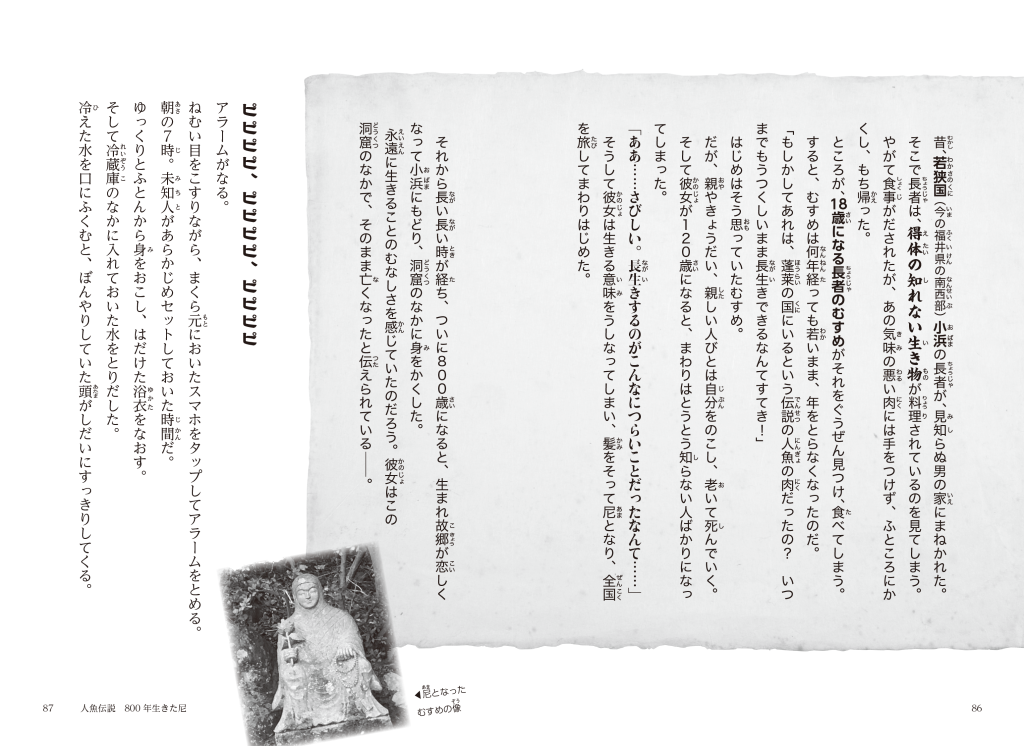 昔、若狭国（今の福井県の南西部）小浜の長者が、見知らぬ男の家にまねかれた。
そこで長者は、得体の知れない生き物が料理されているのを見てしまう。
やがて食事がだされたが、あの気味の悪い肉には手をつけず、ふところにか
くし、もち帰った。
ところが、18歳になる長者のむすめがそれをぐうぜん見つけ、食べてしまう。
すると、むすめは何年経っても若いまま、年をとらなくなったのだ。
「もしかしてあれは、蓬莱の国にいるという伝説の人魚の肉だったの？　いつ
までもうつくしいまま長生きできるなんてすてき！」
はじめはそう思っていたむすめ。
だが、親やきょうだい、親しい人びとは自分をのこし、老いて死んでいく。
そして彼女が120歳になると、まわりはとうとう知らない人ばかりになっ
てしまった。
「ああ……さびしい。長生きするのがこんなにつらいことだったなんて……」
そうして彼女は生きる意味をうしなってしまい、髪をそって尼となり、全国
を旅してまわりはじめた。
それから長い長い時が経ち、ついに800歳になると、生まれ故郷が恋しく
なって小浜にもどり、洞窟のなかに身をかくした。
永遠に生きることのむなしさを感じていたのだろう。彼女はこの
洞窟のなかで、そのまま亡くなったと伝えられている――。
ピピピピピ、ピピピピピ、ピピピピピ
アラームがなる。
ねむい目をこすりながら、まくら元においたスマホをタップしてアラームをとめる。
朝の7時。未知人があらかじめセットしておいた時間だ。
ゆっくりとふとんから身をおこし、はだけた浴衣をなおす。
そして冷蔵庫のなかに入れておいた水をとりだした。
冷えた水を口にふくむと、ぼんやりしていた頭がしだいにすっきりしてくる。
◀尼となった
むすめの像
86
87　人魚伝説　800年生きた尼